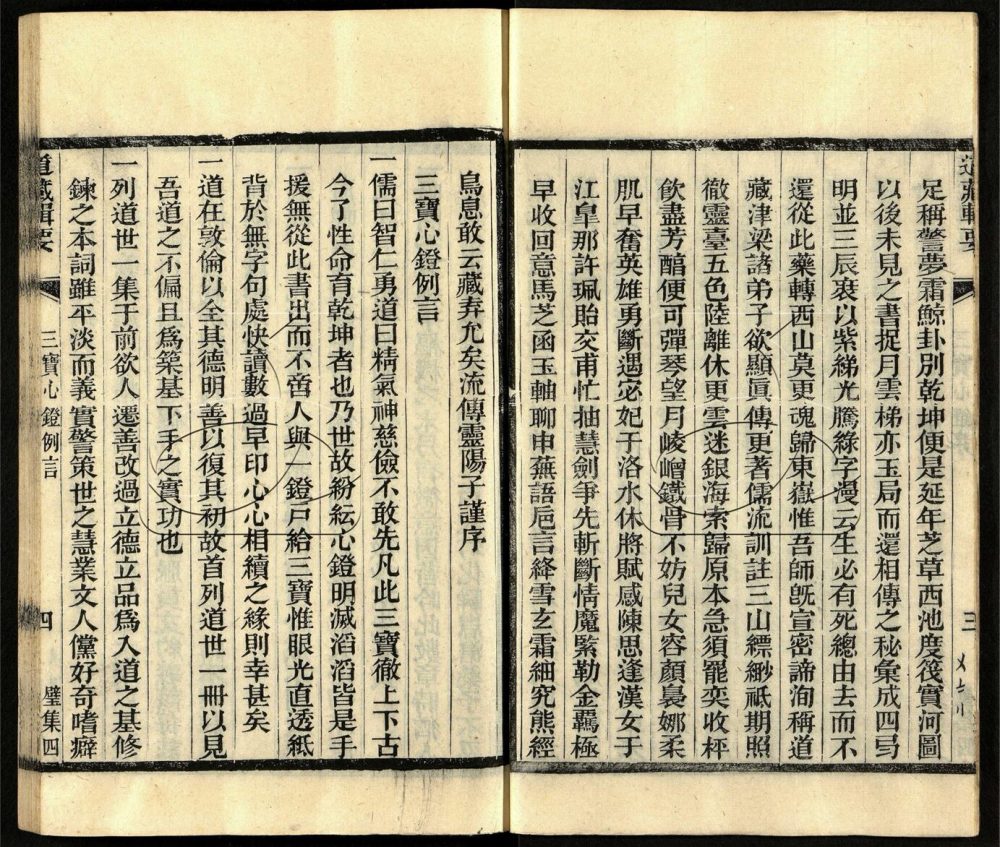 道藏輯要
三
足稱警夢霜鯨卦別乾坤便是延年芝草西池度筏實河圖
以後未見之書捉月雲梯亦玉局而還相傳之秘彙成四弓
明並三辰裒以紫綈光騰綠字漫云生必有死總由去而不
還從此藥轉西山莫更魂歸東嶽惟吾師旣宣密諦洵稱道
藏津梁諸弟子欲顯眞傳更著儒流訓註三山縹緲祇期照
徹靈臺五色陸離休更雲迷銀海索歸原本急須罷奕收枰
飲盡芳醕便可彈琴望月崚嶒鐵骨不妨兒女容顏裊娜柔
肌早奮英雄勇斷遇宓妃于洛水休將賦感陳思逢漢女于
江皋那許珮貽交甫忙抽慧劍爭先斬斷情魔緊勒金羈極
早收回意馬芝函玉軸聊申蕪語巵言絳雪玄霜細究熊經
鳥息敢云藏弆允矣流傳靈陽子謹序
三寶心鐙例言
一儒曰智仁勇道曰精氣神慈儉不敢先凡此三寶徹上下古
今了性命育乾坤者也乃世故紛紜心鐙明滅滔滔皆是手
援無從此書出而不啻人與一鐙戸給三寶惟眼光直透紙
背於無字句處快讀數過早印心心相續之緣則幸甚矣
一道在敦倫以全其德明善以復其初故首列道世一冊以見
吾道之不偏且爲築基下手之實功也
一列道世一集于前欲人遷善改過立德立品爲入道之基修
鍊之本詞雖平淡而義實警策世之慧業文人儻好奇嗜癖
道藏輯要
三寶心鐙例言
四
璧集四